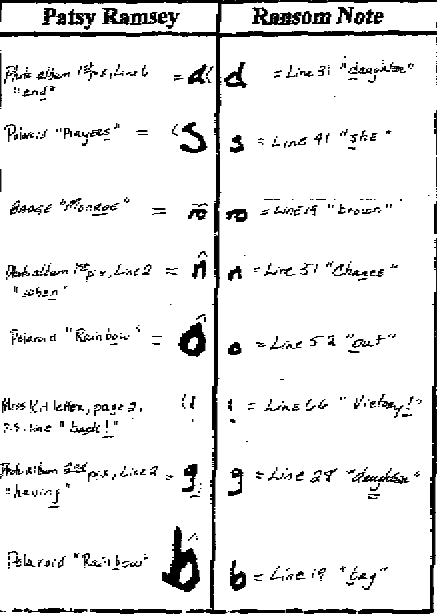 Patsy Ramsey Ransom Note
Photo album 1st pix, Line 6 = d d = Line 31 "daughter"
"end"
Polaroid "Prayers" = S s = Line 41 "she"
"Monroe" = = Line 19 "brown"
Photo album 1st pix, Line 2 = n n = Line 31 "Chance"
"when"
Polaroid "Rainbow" = o o = Line 52 "out"
Miss Kit letter, page 2, ! ! = Line 66 "Victory!"
P.S. line "back!"
Photo album 2nd pix, Line 2 = g g = Line 28 "daughter"
"having"
Polaroid "Rainbow" b b = Line 19 "bag"